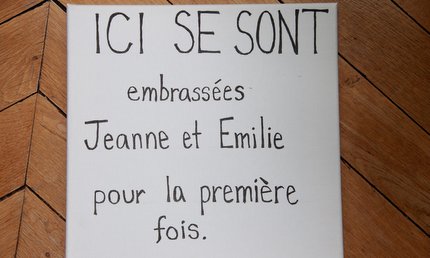 ICI SE SONT
embrassées
Jeanne et Emilie
pour la première
fois.